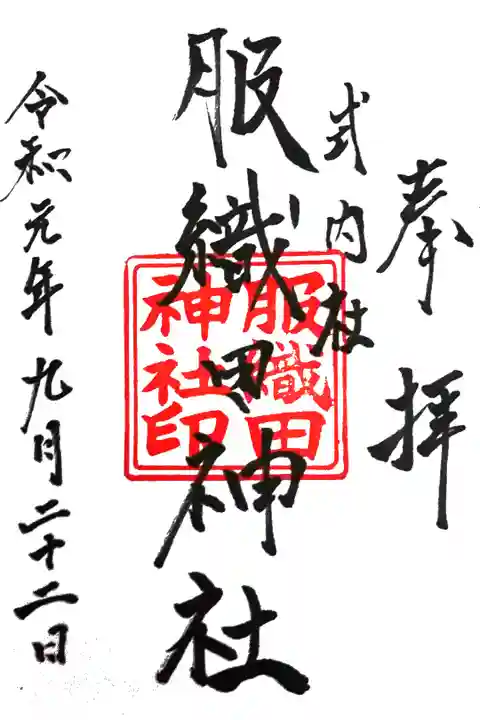 奉拝
式内社
服織田神社
服織田
神社印
令和元年九月二十二日